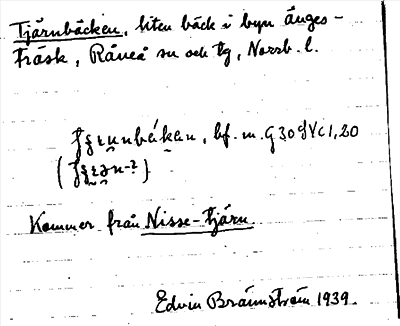 Tjärnbäcken, liten bäck i byn Änges-
träsk, Råneå sn och tg, Norrb. l.
bf. m. G30 9Vc1,20
Kommer från Nisse-tjärn
Edvin Brännström 1939.